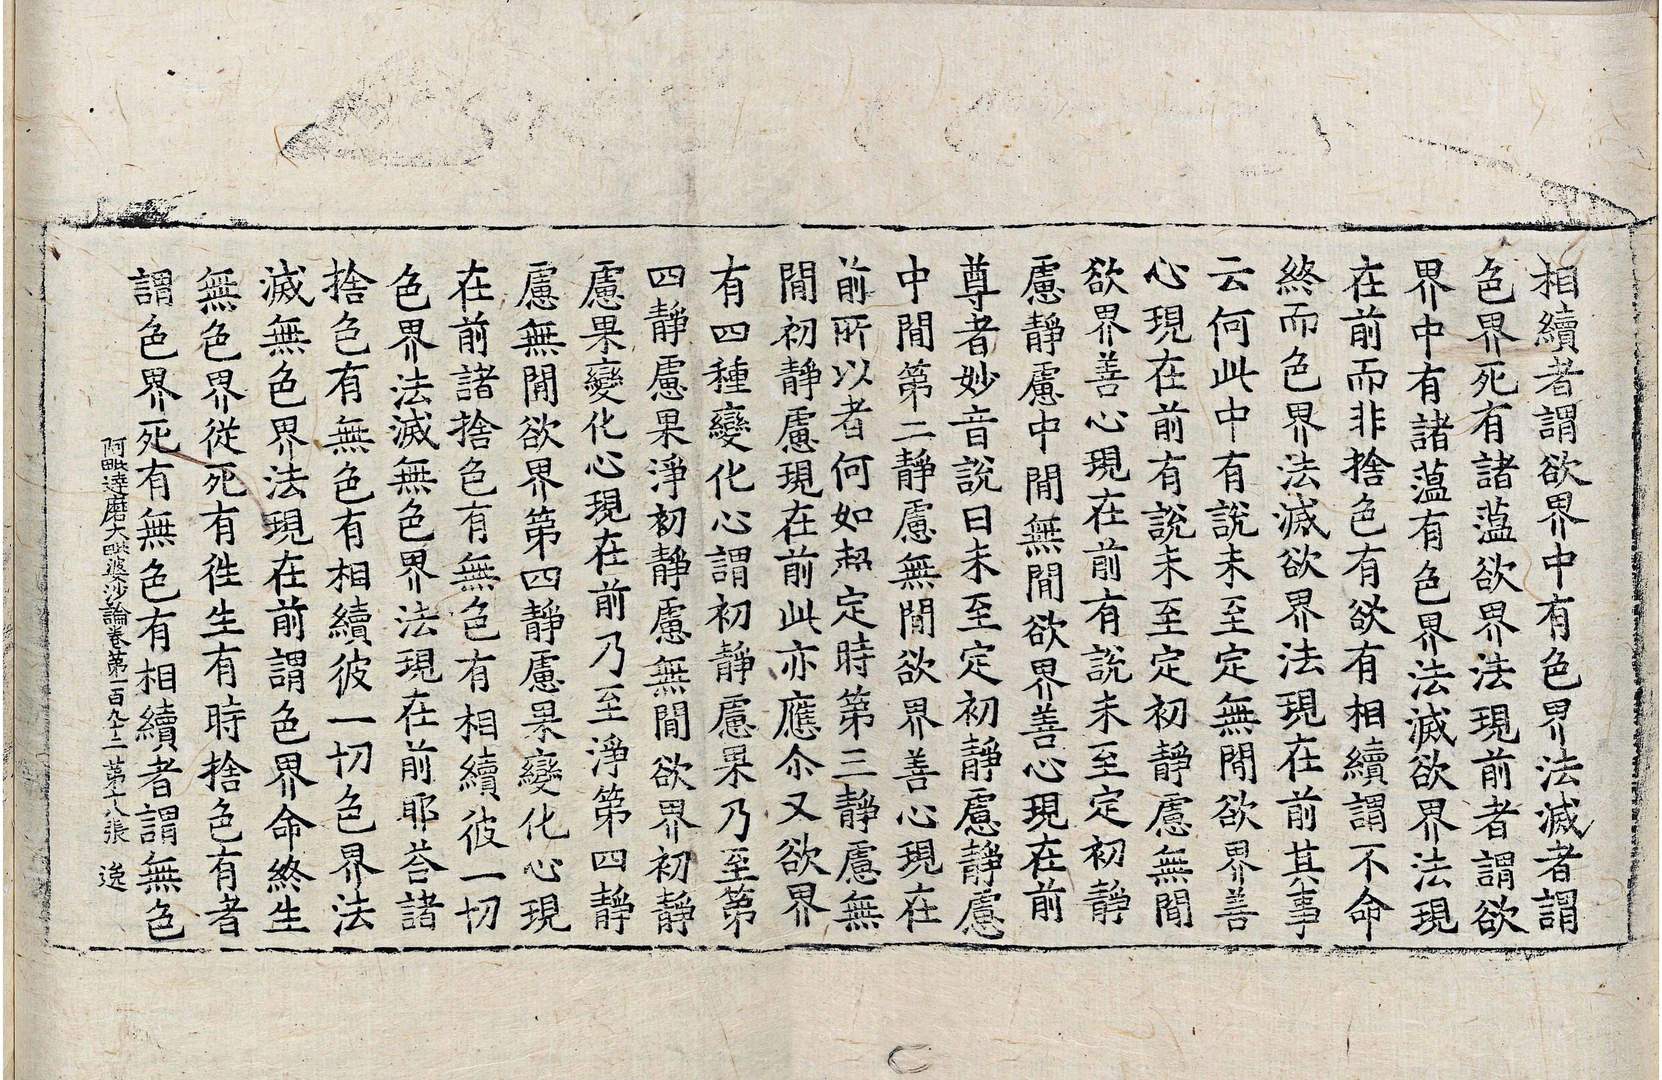 相續者謂欲界中有色界法滅者謂
色界死有諸薀欲界法現前者謂欲
界中有諸薀有色界法滅欲界法現
在前而非捨色有欲有相續謂不命
終而色界法滅欲界法現在前其事
云何此中有說未至定無閒欲界善
心現在前有說未至定初靜慮無閒
欲界善心現在前有說未至定初靜
慮靜慮中閒無閒欲界善心現在前
尊者妙音說曰未至定初靜慮靜慮
中閒第二靜慮無閒欲界善心現在
前所以者何如熱定時第三靜慮無
閒初靜慮現在前此亦應尒又欲界
有四種變化心謂初靜慮果乃至第
四靜慮果淨初靜慮無閒欲界初靜
慮果變化心現在前乃至淨第四靜
慮無閒欲界第四靜慮果變化心現
在前諸捨色有無色有相續彼一切
色界法滅無色界法現在前耶荅諸
捨色有無色有相續彼一切色界法
滅無色界法現在前謂色界命終生
無色界從死有徃生有時捨色有者
謂色界死有無色有相續者謂無色
阿毗達磨大毗婆沙論卷第一百九十二 第十八張 逸